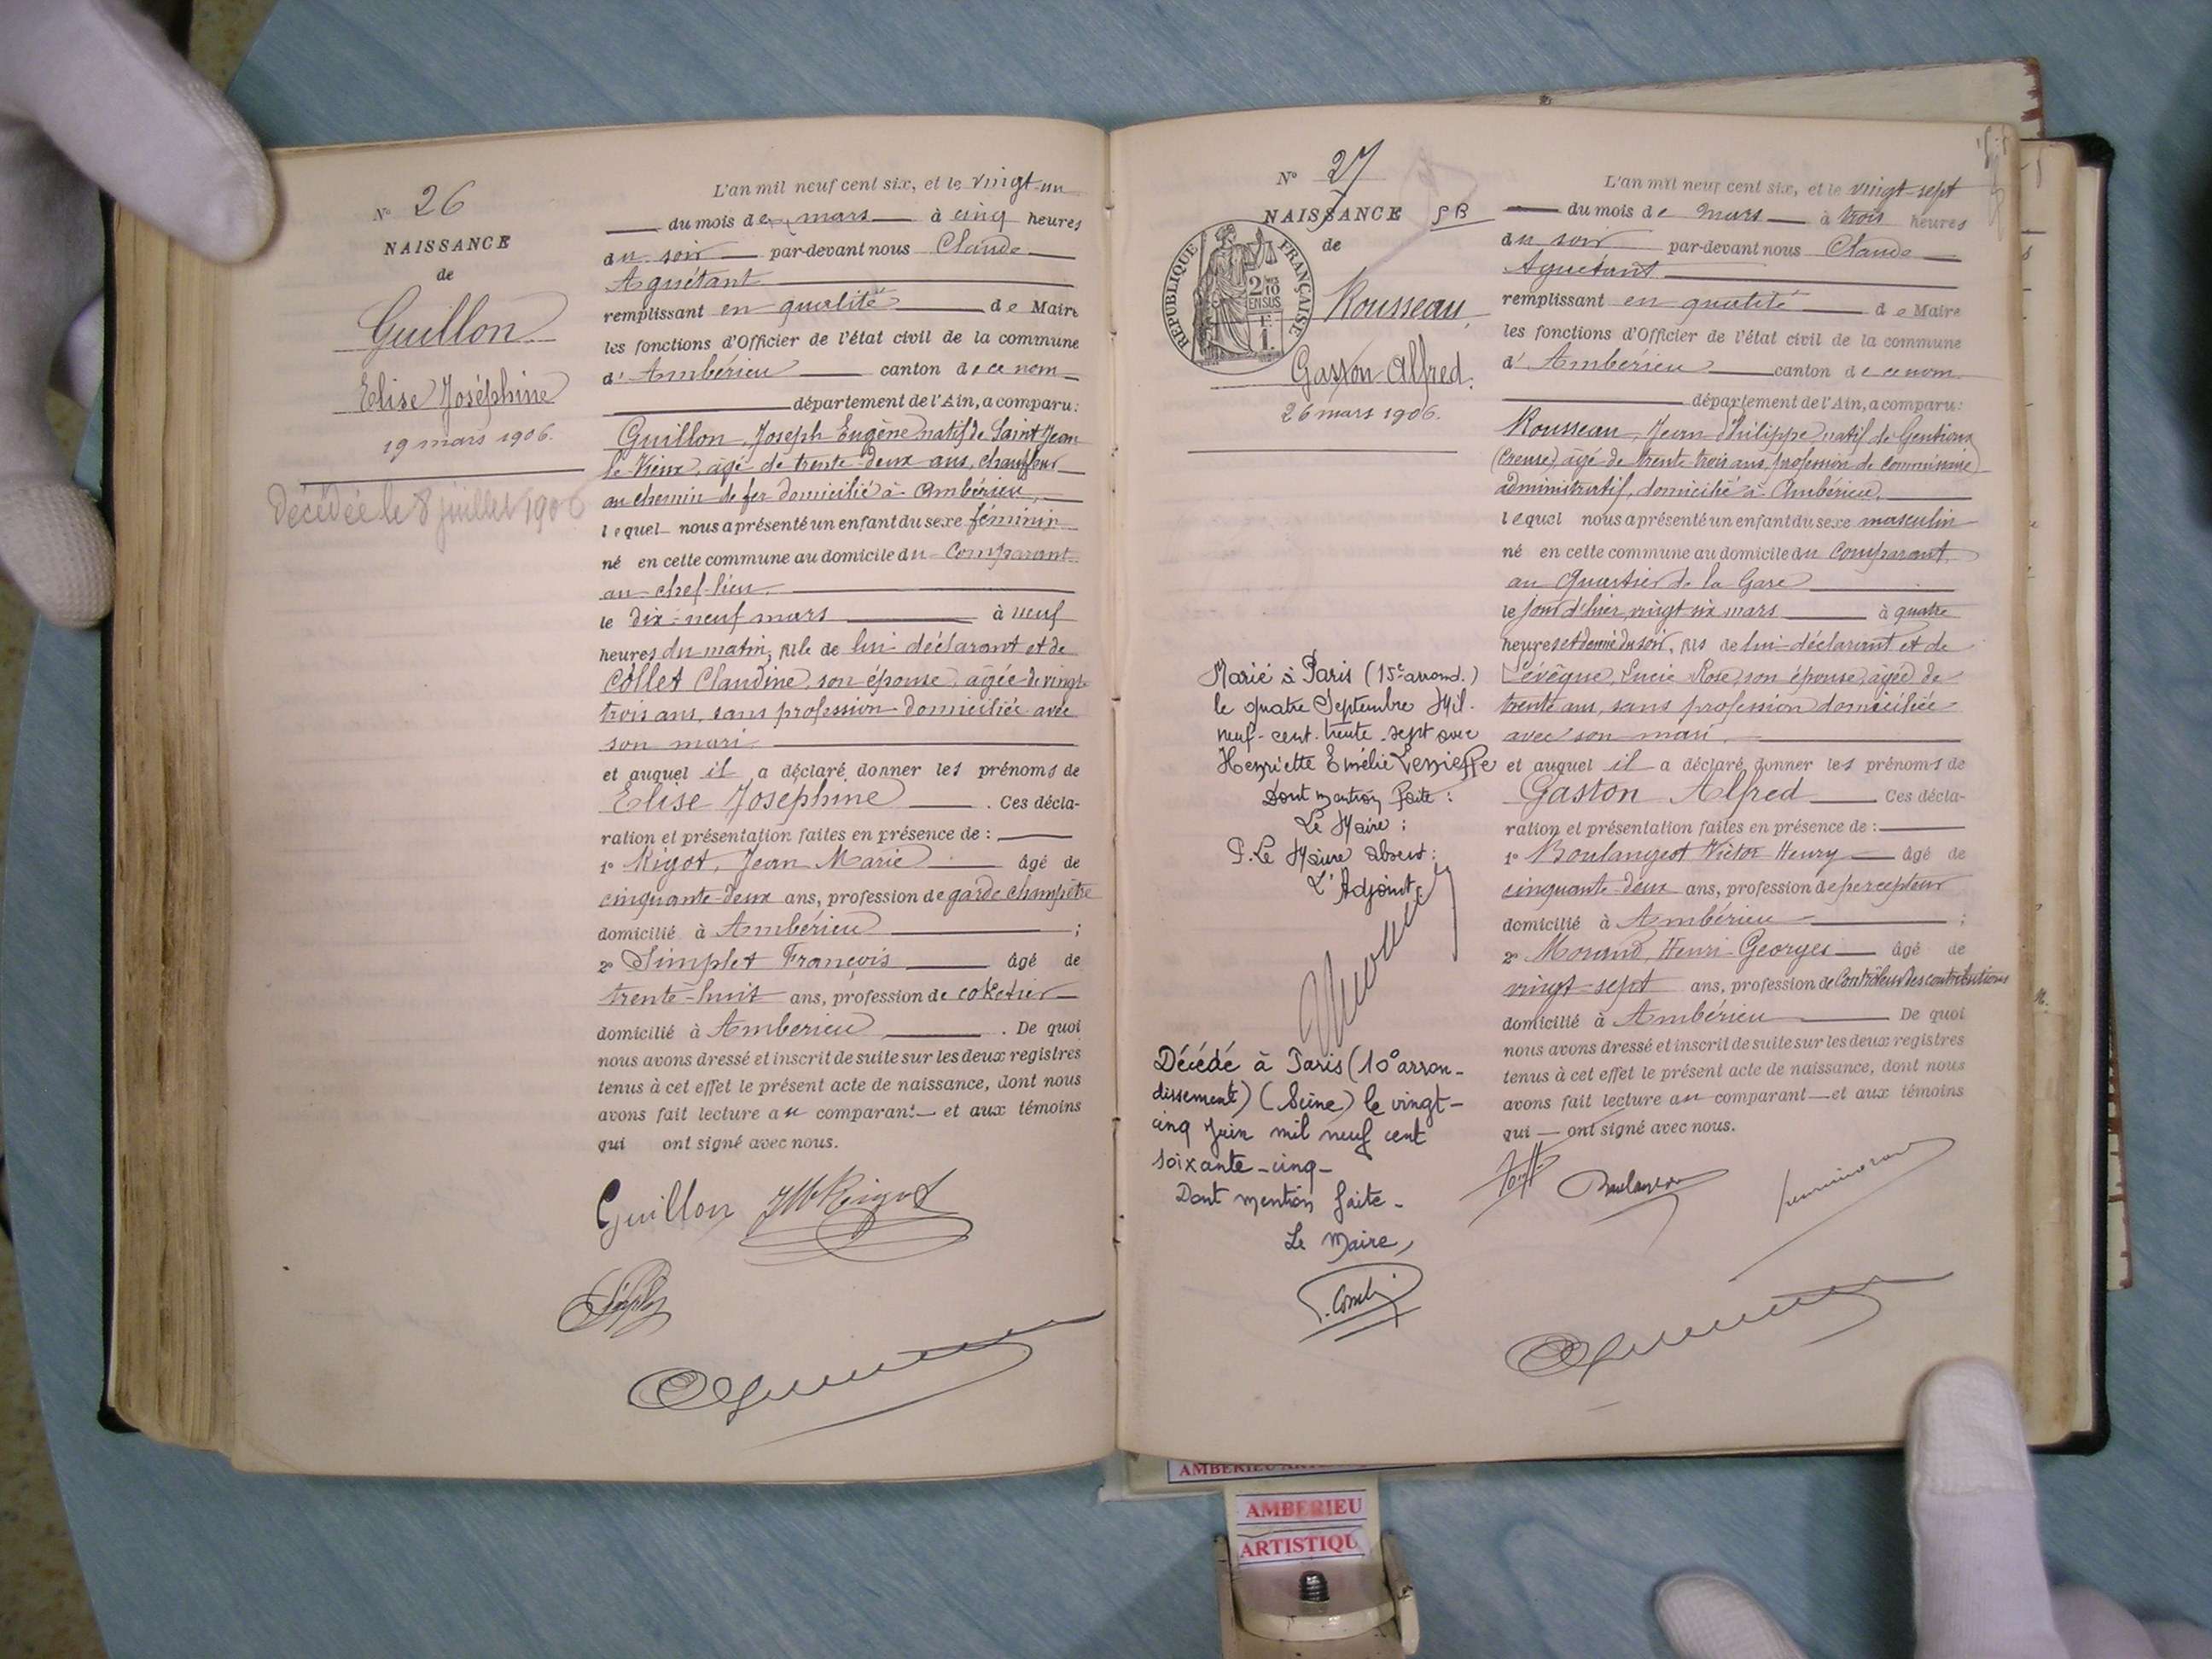 N° 26
NAISSANCE
de
Guillon
Elise Joséphine
19 mars 1906.
Décédée le 8 juillet 1906
L'an mil neuf cent six, et le vingt-un
du mois de mars à cinq heures
du soir par-devant nous Claude
Aguétant
remplissant en qualité de Maire
les fonctions d'Officier de l'état civil de la commune
d'Ambérieu canton de ce nom
département de l'Ain, a comparu:
Guillon, Joseph Eugène natif de Saint Jean
le Vieux, âgé de trente-deux ans, chauffeur
au chemin de fer domicilié à Ambérieu,
lequel nous a présenté un enfant du sexe féminin
né en cette commune au domicile du Comparant
au chef-lieu.
le dix-neuf mars à neuf
heures du matin, fille de lui déclarant et de
Collet Claudine, son épouse, âgée de vingt
trois ans, sans profession domiciliée avec
son mari
et auquel il a déclaré donner les prénoms de
Elise Josephine. Ces décla-
ration et présentation faites en présence de :
1° Rigot, Jean Marie âgé de
cinquante-deux ans, profession de garde champêtre
domicilié à Ambérieu ;
2° Simplet François âgé de
trente-huit ans, profession de coketier
domicilié à Amberieu. De quoi
nous avons dressé et inscrit de suite sur les deux registres
tenus à cet effet le présent acte de naissance, dont nous
avons fait lecture au comparant et aux témoins
qui ont signé avec nous.
Guillon JM Rigot
N° 27
NAISSANCE SB
de
RÉPUBLIQUE FRANÇAISE
2/10
EN SUS
Rousseau,
Gaston Alfred.
26 mars 1906.
Marié à Paris (15e arrond.)
le quatre Septembre Mil-
neuf-cent-trente-sept avec
Henriette Emélie
Dont mention faite :
Le Maire :
P. Le Maire absent :
L'Adjoint
Décédé à Paris (10° arron-
dissement) (Seine) le vingt-
cinq Juin mil neuf cent
soixante-cinq-
Dont mention faite-
Le Maire,
L'an mil neuf cent six, et le vingt-sept
du mois de mars à trois heures
du soir par-devant nous Claude
Aguétant
remplissant en qualité de Maire
les fonctions d'Officier de l'état civil de la commune
d'Ambérieu canton de ce nom
département de l'Ain, a comparu:
Rousseau, Jean Philippe natif de Gentioux
(Creuse) âgé de trente trois ans, profession de commissaire
administratif, domicilié à Ambérieu.
lequel nous a présenté un enfant du sexe masculin
né en cette commune au domicile du comparant,
au Quartier de la Gare
le jour d'hier, vingt six mars à quatre
heures et demie du soir, fils de lui déclarant et de
Lévêque, Lucie Rose, son épouse, âgée de
trente ans, sans profession domiciliée
avec son mari.
et auquel il a déclaré donner les prénoms de
Gaston Alfred Ces décla-
ration et présentation faites en présence de :
1° Boulangeot Victor Henry âgé de
cinquante-deux ans, profession de percepteur
domicilié à Ambérieu ;
2° Morand, Henri-Georges âgé de
vingt-sept ans, profession de Contrôleur des contributions
domicilié à Ambérieu De quoi
nous avons dressé et inscrit de suite sur les deux registres
tenus à cet effet le présent acte de naissance, dont nous
avons fait lecture au comparant et aux témoins
qui ont signé avec nous.
AMBERIEU
AMBERIEU
ARTISTIQU